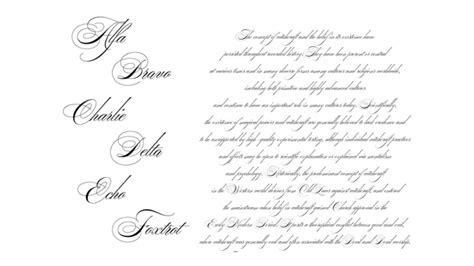 Alfa
Bravo
Charlie
Delta
Echo
Foxtrot
The concept of witchcraft and the belief in its existence have
persisted throughout recorded history. They have been present or central
at various times and in many diverse forms among cultures and religions worldwide,
including both primitive and highly advanced cultures
and continue to have an important role in many cultures today. Scientifically,
the existence of magical powers and witchcraft are generally believed to lack credence and
to be unsupported by high quality experimental testing, although individual witchcraft practices
and effects may be open to scientific explanation or explained via mentalism
and psychology. Historically, the predominant concept of witchcraft
in the Western world derives from Old Laws against witchcraft, and entered
the mainstream when belief in witchcraft gained Church approval in the
Early Modern Period. It posits a theosophical conflict between good and evil,
where witchcraft was generally evil and often associated with the Devil and Devil worship.